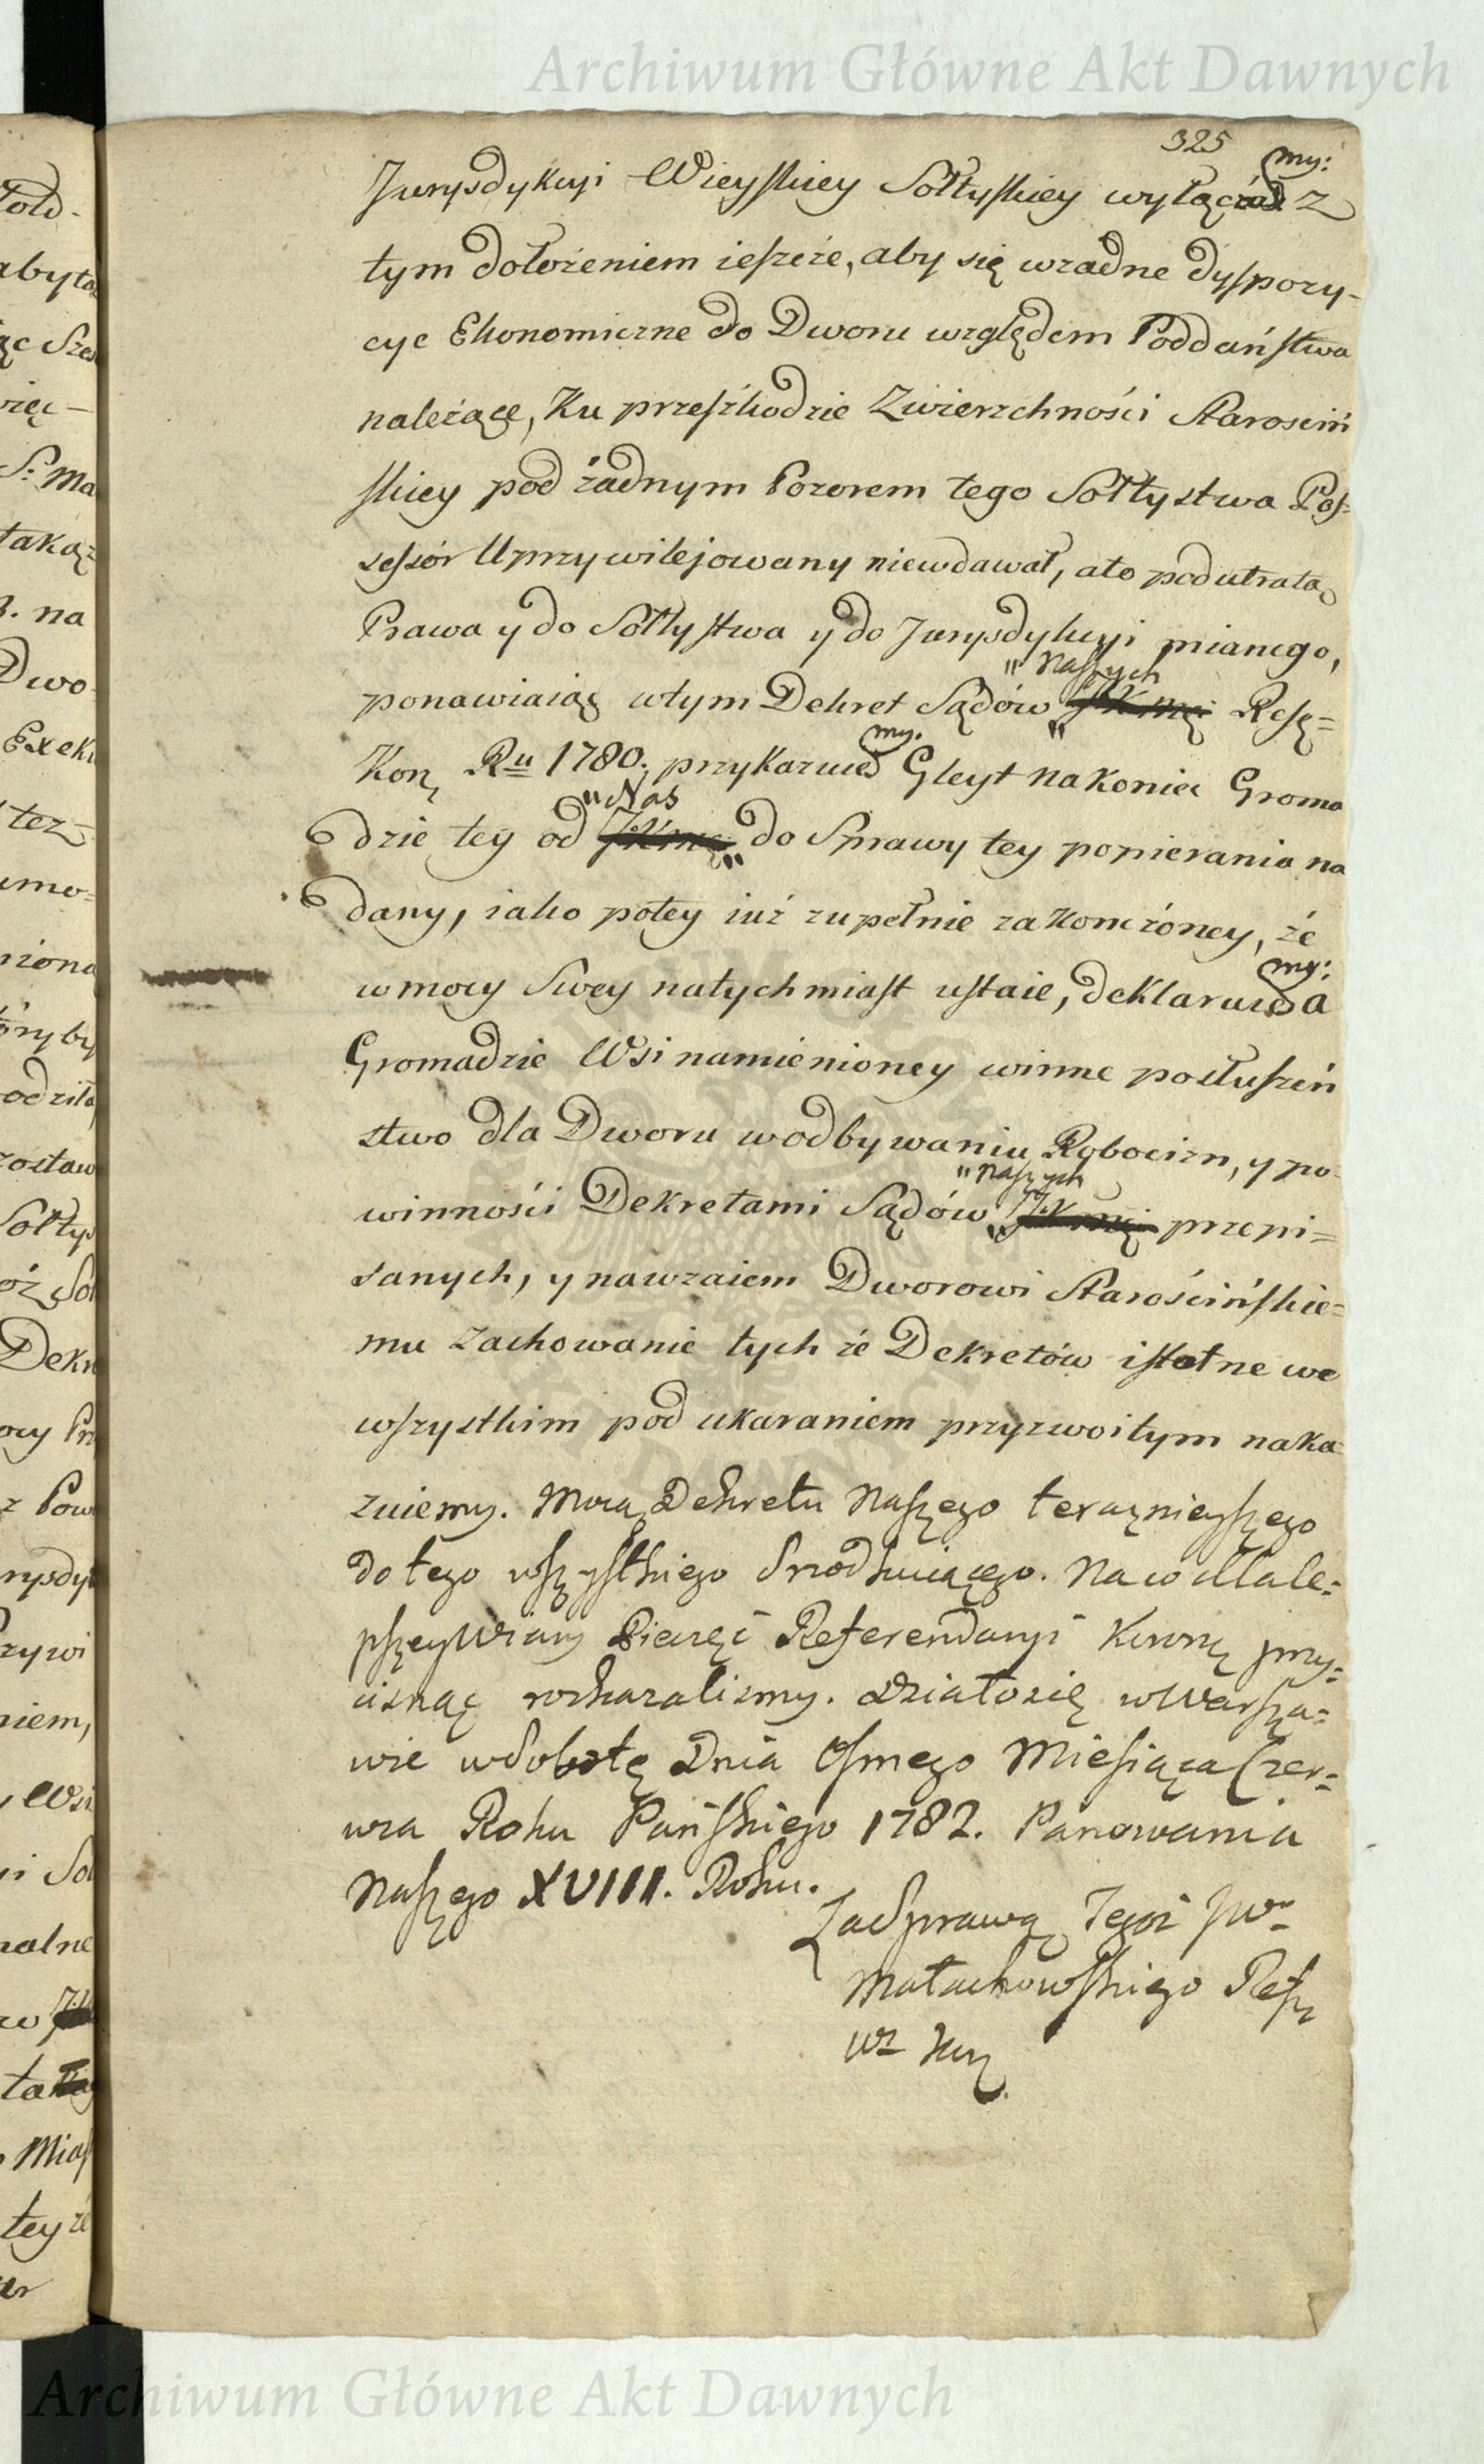 Archiwum Główne Akt Dawnych
325
my:
Jurysdykcyi Wieyskiey Sołtyskiey wyłącza z
tym dołożeniem ieszcze, aby się wzadne dyspozy-
cye Ekonomiczne do Dworu względem Poddaństwa
należące, Ku przeszkodzie Zwierzchności Starosciń
skiey pod żadnym Pozorem tego Sołtystwa Pos=
sessór Uprzywilejowany niewdawał, ato pod utratą
Prawa y do Sołtystwa y do Jurysdykcyi mianego,
" Naszych
ponawiaiąc wtym Dekret Sądów „JKmci Refę=
my.
Kon Ru 1780. przykazuie Gleyt nakoniec Groma
"Nas
dzie tey od JKmci „ do Sprawy tey popierania na
dany, iako potey iuż zupełnie zakończoney, że
my:
w mocy Swey natychmiast ustaie, deklaruie a
Gromadzie Wsi namienioney winne posłuszeń
stwo dla Dworu wodbywaniu Robocizn, y po-
" naszych
winności Dekretami Sądów „JKmci przepi=
sanych, y nawzaiem Dworowi Starościńskie=
mu zachowanie tych że Dekretów istotne we
wszystkim pod ukaraniem przyzwoitym naka
zuiemy. Mocą Dekretu Naszego teraznieyszego
do tego wszystkiego Srodkuiącego. Na co dla le=
pszey Wiary Pieczęć Referendaryi Koronną przy=
cisnąć roskazalismy. Działosię w Warsza=
wie w Sobotę Dnia Osmego Miesiąca Czer=
wca Roku Pańskiego 1782. Panowania
Naszego XVIII. Roku.
Za Sprawą Tegoż JW-
Małachowskiego Refr
Archiwum Główne Akt Dawnych